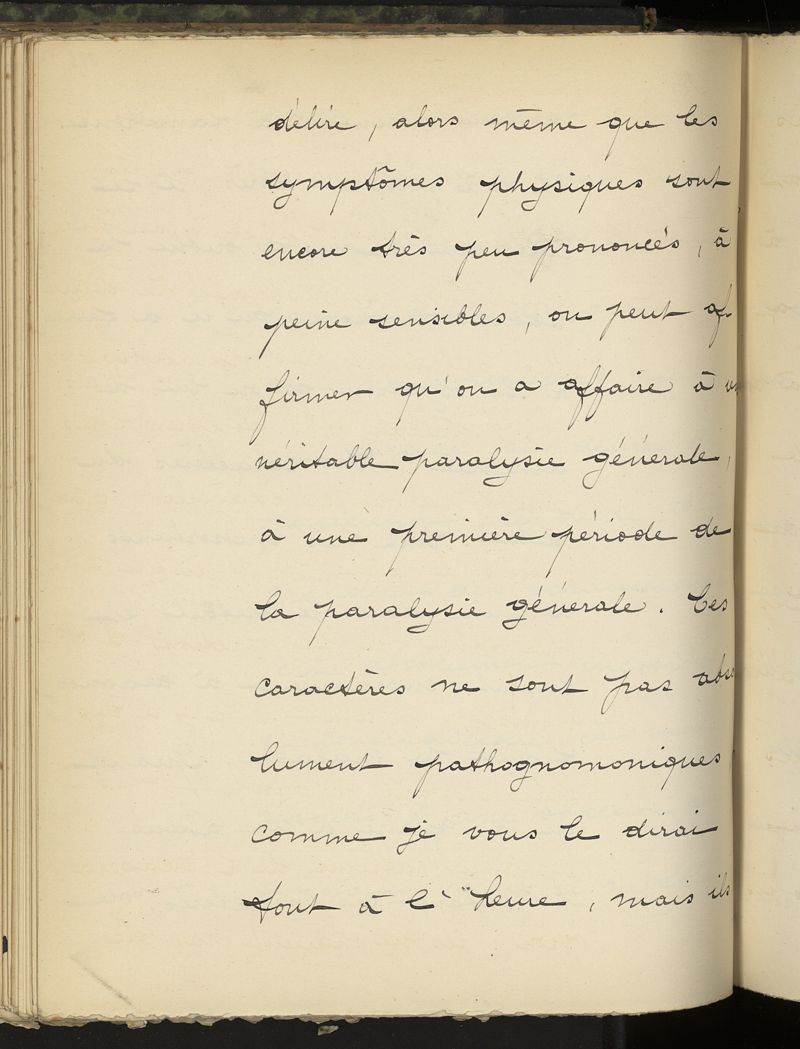 délire, alors même que les
symptômes physiques sont
encore très peu prononcés, à
peine sensibles, on peut af
firmer qu'on a affaire à
véritable paralysie générale,
à une première période de
la paralysie générale. Ces
caractères ne sont pas abso
lument pathognomoniques,
comme je vous le dirai
tout à l'heure, mais ils